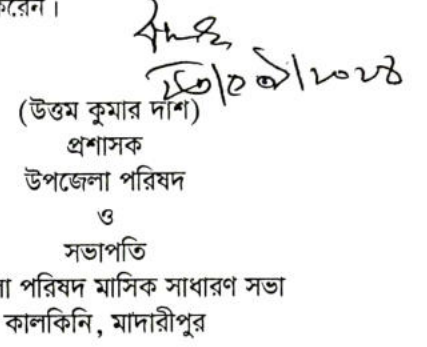 করেন।
(উত্তম কুমার দাশ)
প্রশাসক
উপজেলা পরিষদ
ও
সভাপতি
পরিষদ মাসিক সাধারণ সভা
কালকিনি, মাদারীপুর